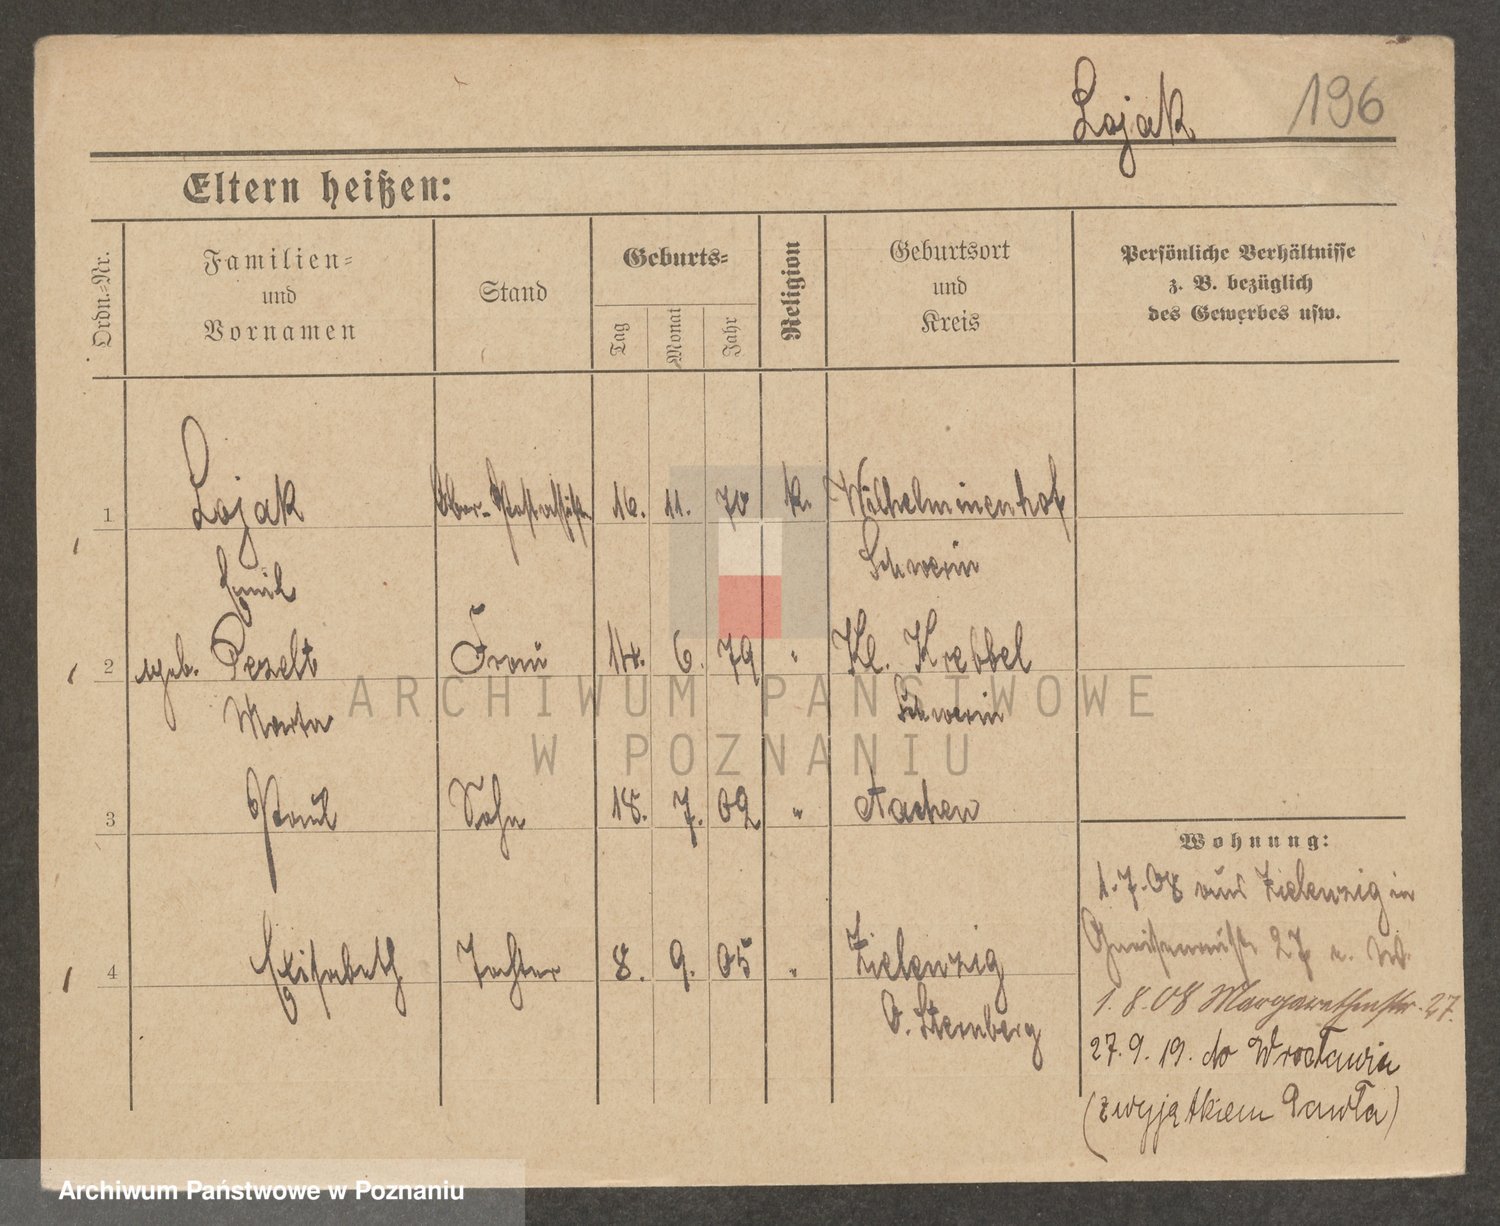 Lojak 196
Eltern heißen:
Ordn.-Nr.
Familien-
und
Vornamen
Stand
Geburts-
Tag
Monat
Jahr
Religion
Geburtsort
und
Kreis
Persönliche Verhältnisse
z. B. bezüglich
des Gewerbes usw.
1 Lojak 16. 11. 70 k. Wilhelminenhof
Emil Schwerin
2 geb. Pezelt Frau 14. 6. 79 " Kl. Krebbel
Marta Schwerin
3 Paul Sohn 18. 7. 02 " Aachen
4 Elisabeth Tochter 8. 9. 05 " Zielenzig
O. Sternberg
Wohnung:
1.7.08 aus Zielenzig in
Gneisenaustr. 27
1.8.08 Margarethenstr. 27.
27.9.19. do Wrocławia
(z wyjątkiem Pawła)
ARCHIWUM PAŃSTWOWE
W POZNANIU
Archiwum Państwowe w Poznaniu